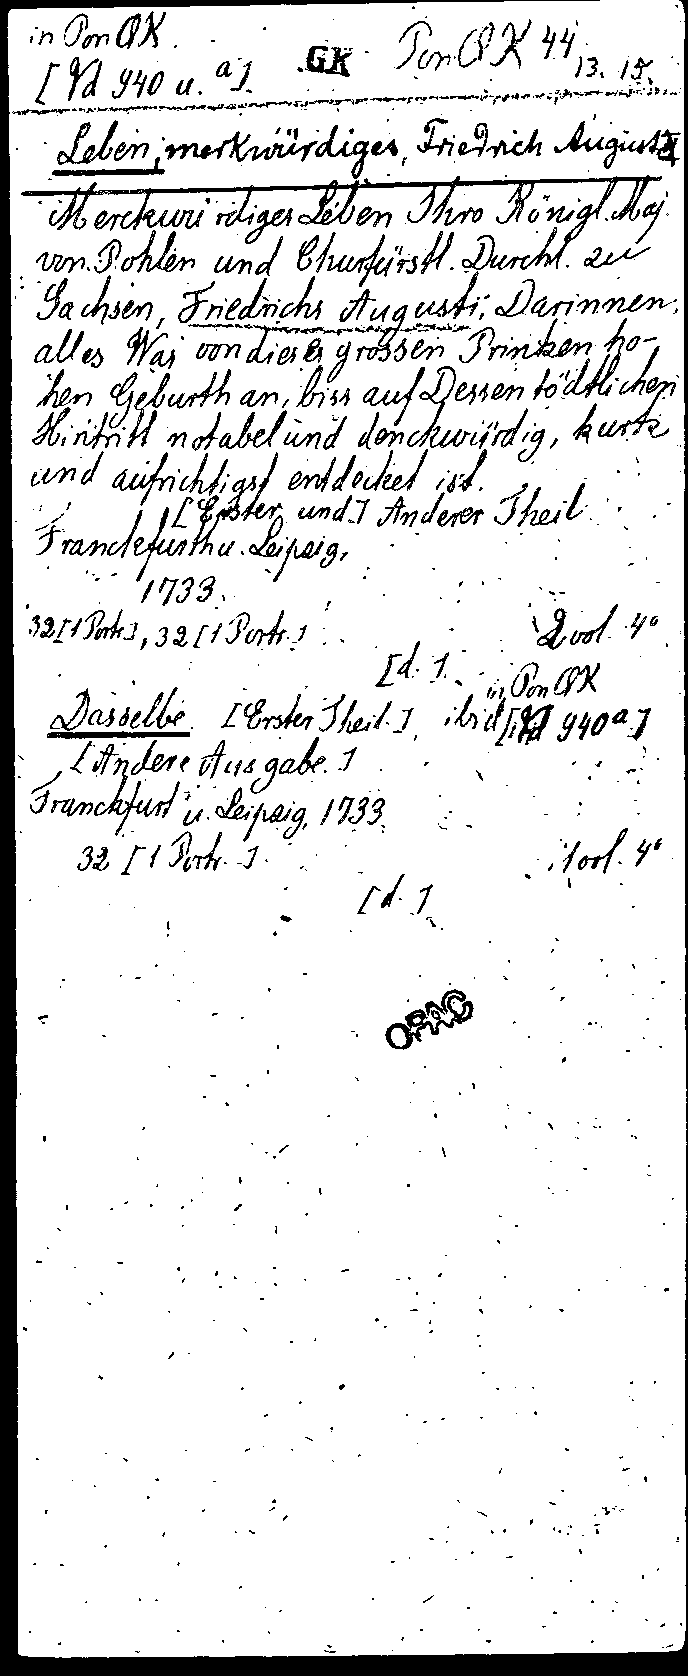 in Pon QK.
[Vd 940 u. a].
GK
Pon QK 44
13. 15.
Leben, merkwürdiges, Friedrich August II
Merckwürdiges Leben Ihro Königl. Maj.
von Pohlen und Churfürstl. Durchl. zu
Sachsen, Friedrichs Augusti; Darinnen,
alles Was von dieses grossen Printzen ho-
hen Geburth an, biss auf Dessen tödtlichen
Hintritt notabel und denckwürdig, kurtz
und aufrichtigst entdecket ist.
[Erster und] Anderer Theil
Franckfurth u. Leipzig,
1733.
32 [1 Portr.], 32 [1 Portr.]
2 vol. 4°
[d.].
in Pon QK
Dasselbe. [Erster Theil.], ibid [Vd 940a.]
[Andere Ausgabe.]
Franckfurt u. Leipzig, 1733.
32 [1 Portr.].
1 vol. 4°
[d.].
OPAC